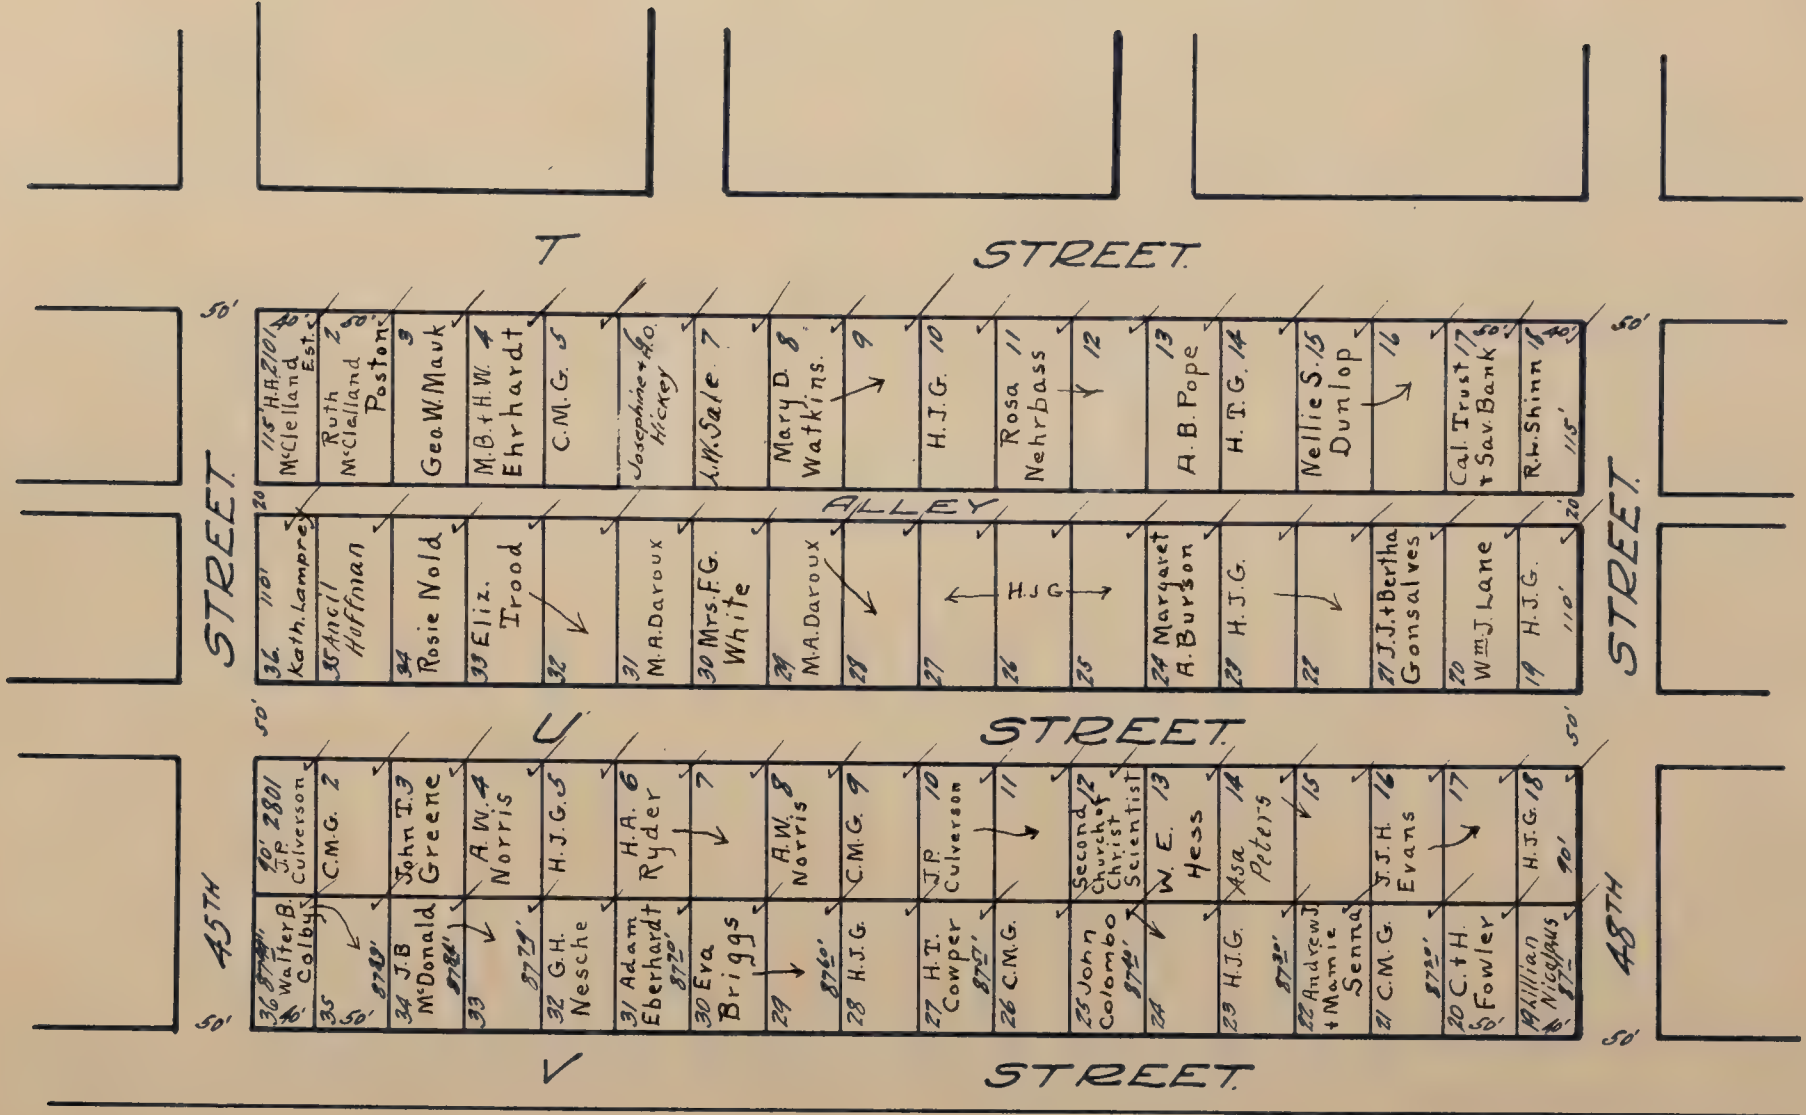 T STREET.
50'
50'
115' H.A. 2101 40'
McClelland Est.
Ruth 2 50'
McClelland
Poston
3
Geo. W. Mauk
M.B. + H.W. 4
Ehrhardt
C.M.G. 5
Josephine + H.O. 6
Hickey
L.W. Sale 7
Mary D. 8
Watkins.
9
H.J.G. 10
Rosa 11
Nehrbass
12
13
A.B. Pope
H.T.G. 14
Nellie S. 15
Dunlop
16
Cal. Trust 17 50'
+ Sav. Bank
R.L. Shinn 18 40'
115'
20'
ALLEY
20'
STREET.
STREET.
36. 110'
Kath. Lamprey
35 Ancil
Hoffman
34
Rosie Nold
33 Eliz.
Trood
32
31
M.A. Daroux
30 Mrs. F.G.
White
29
M.A. Daroux
28
27
26
H.J.G.
25
24 Margaret
A. Burson
23 H.J.G.
22
21 J.J. + Bertha
Gonsalves
20
Wm. J. Lane
19 H.J.G.
110'
50'
U STREET.
50'
90' 2801
J.P.
Culverson
C.M.G. 2
John T. 3
Greene
A.W. 4
Norris
H.J.G. 5
H.A. 6
Ryder
7
A.W. 8
Norris
C.M.G. 9
J.P. 10
Culverson
11
Second 12
Church of
Christ
Scientist
W.E. 13
Hess
Asa 14
Peters
15
J.J.H. 16
Evans
17
H.J.G. 18
90'
45TH
48TH
36
Walter B.
Colby
40'
35 50'
34 J.B
McDonald
33
32 G.H.
Nesche
31 Adam
Eberhardt
30 Eva
Briggs
29
28 H.J.G.
27 H.T.
Cowper
26 C.M.G.
25 John
Colombo
24
23 H.J.G.
22 Andrew J.
+ Mamie
Senna
21 C.M.G.
20 C. + H.
50' Fowler
19
40'
50'
50'
V STREET.